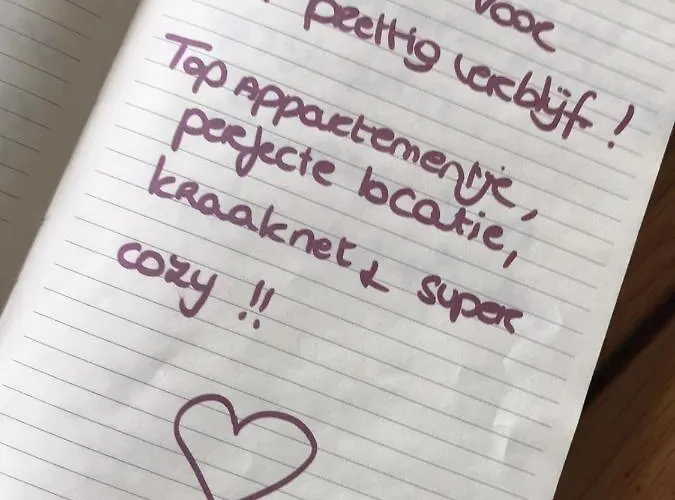 voor
prettig verblijf !
Top appartementje,
perfecte locatie,
kraaknet & super
cozy !!